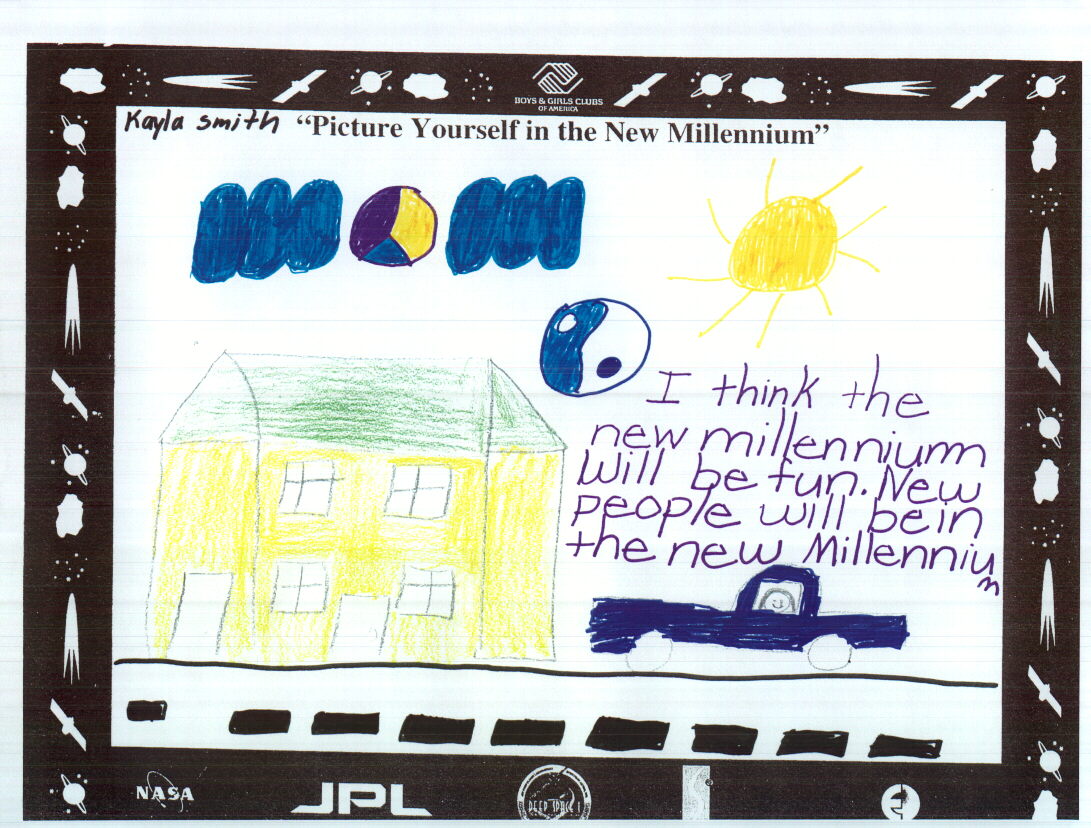 BOYS & GIRLS CLUBS
OF AMERICA
Kayla Smith "Picture Yourself in the New Millennium"
I think the
new millennium
will be fun. New
people will be in
the new Millennium
NASA
JPL
DEEP SPACE 1